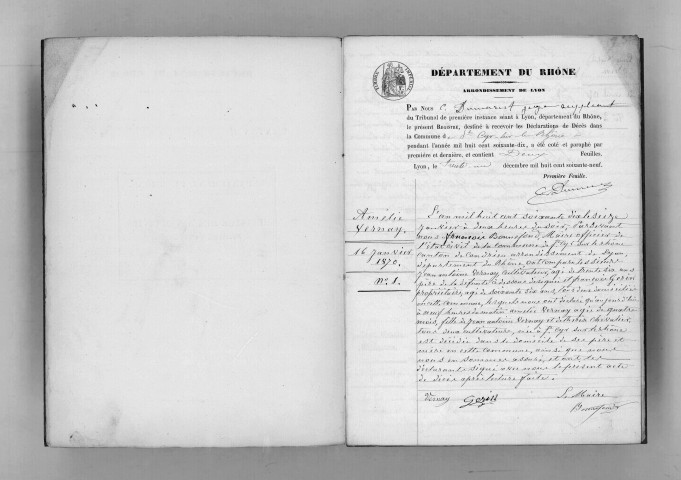 DÉPARTEMENT DU RHÔNE
ARRONDISSEMENT DE LYON
PAR NOUS C. juge suppléant
du Tribunal de première instance séant à Lyon, département du Rhône,
le présent REGISTRE, destiné à recevoir les Déclarations de Décès dans
la Commune de St Cyr sur le Rhône
pendant l'année mil huit cent soixante-dix, a été coté et paraphé par
première et dernière, et contient Deux Feuilles.
Lyon, le trente un décembre mil huit cent soixante-neuf.
Première Feuille.
Amélie
Vernay
16 Janvier
1870.
N° 1.
L'an mil huit cent soixante dix le seize
Janvier à deux heures du soir, Pardevant
nous Bonnefond, Maire officier de
l'état civil de la commune de St Cyr sur le rhône
canton de Condrieu arrondissement de Lyon,
département du Rhône, ont comparu les sieurs
Jean antoine Vernay, cultivateur, agé de trente six ans
père de la défunte et françois Gerin
propriétaire, agé de soixante six ans, tous deux domiciliés
en cette commune, lesquels nous ont déclaré qu'aujourd'hui
à neuf heures du matin amélie Vernay agée de quatre
mois, fille de Jean antoine Vernay et de chevalier,
tous deux cultivateurs, née à St Cyr sur le rhône
est décédée dans le domicile de ses père et
mère en cette commune, ainsi que nous
nous en sommes assuré, et ont, les
déclarants signé avec nous le présent acte
de décès après lecture faite.
Vernay Gerin Le Maire
Bonnefond